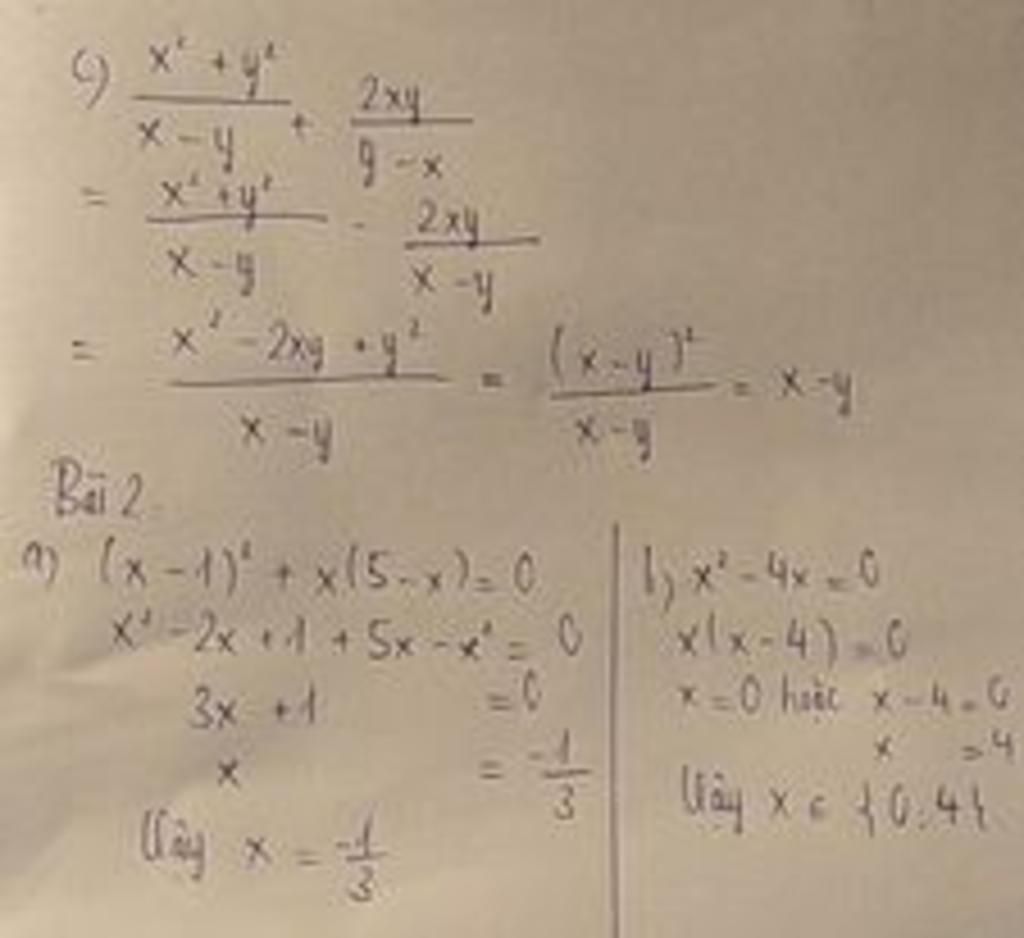 c) (x² + y²)/(x - y) + 2xy/(y - x)
= (x² + y²)/(x - y) - 2xy/(x - y)
= (x² - 2xy + y²)/(x - y) = (x - y)²/(x - y) = x - y
Bài 2.
a) (x - 1)² + x(5 - x) = 0
x² - 2x + 1 + 5x - x² = 0
3x + 1 = 0
x = -1/3
Vậy x = -1/3
b) x² - 4x = 0
x(x - 4) = 0
x = 0 hoặc x - 4 = 0
x = 4
Vậy x ∈ {0; 4}